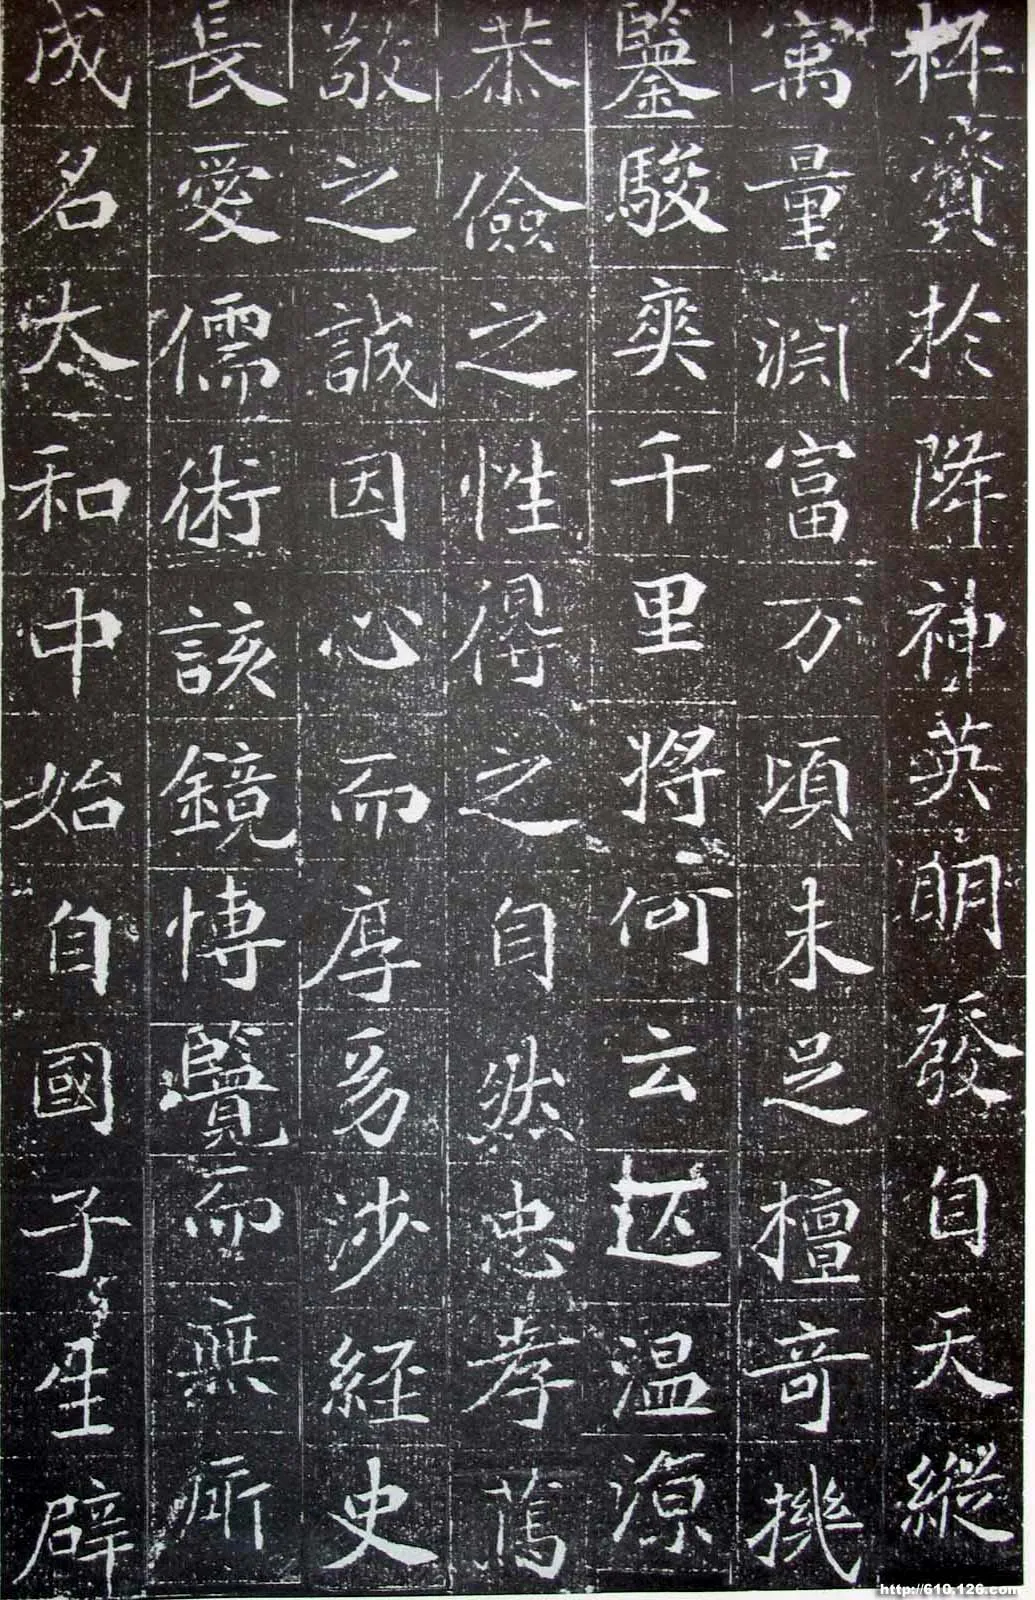 杯資於降神英朗發自天縱
寓量淵富万頃未足擅奇機
鑒駿爽千里將何云迖温源
恭儉之性得之自然忠孝蔿
敬之誠因心而厚爰涉經史
長愛儒術該鏡博覽而無所
成名太和中始自國子生辟
http://610.126.com